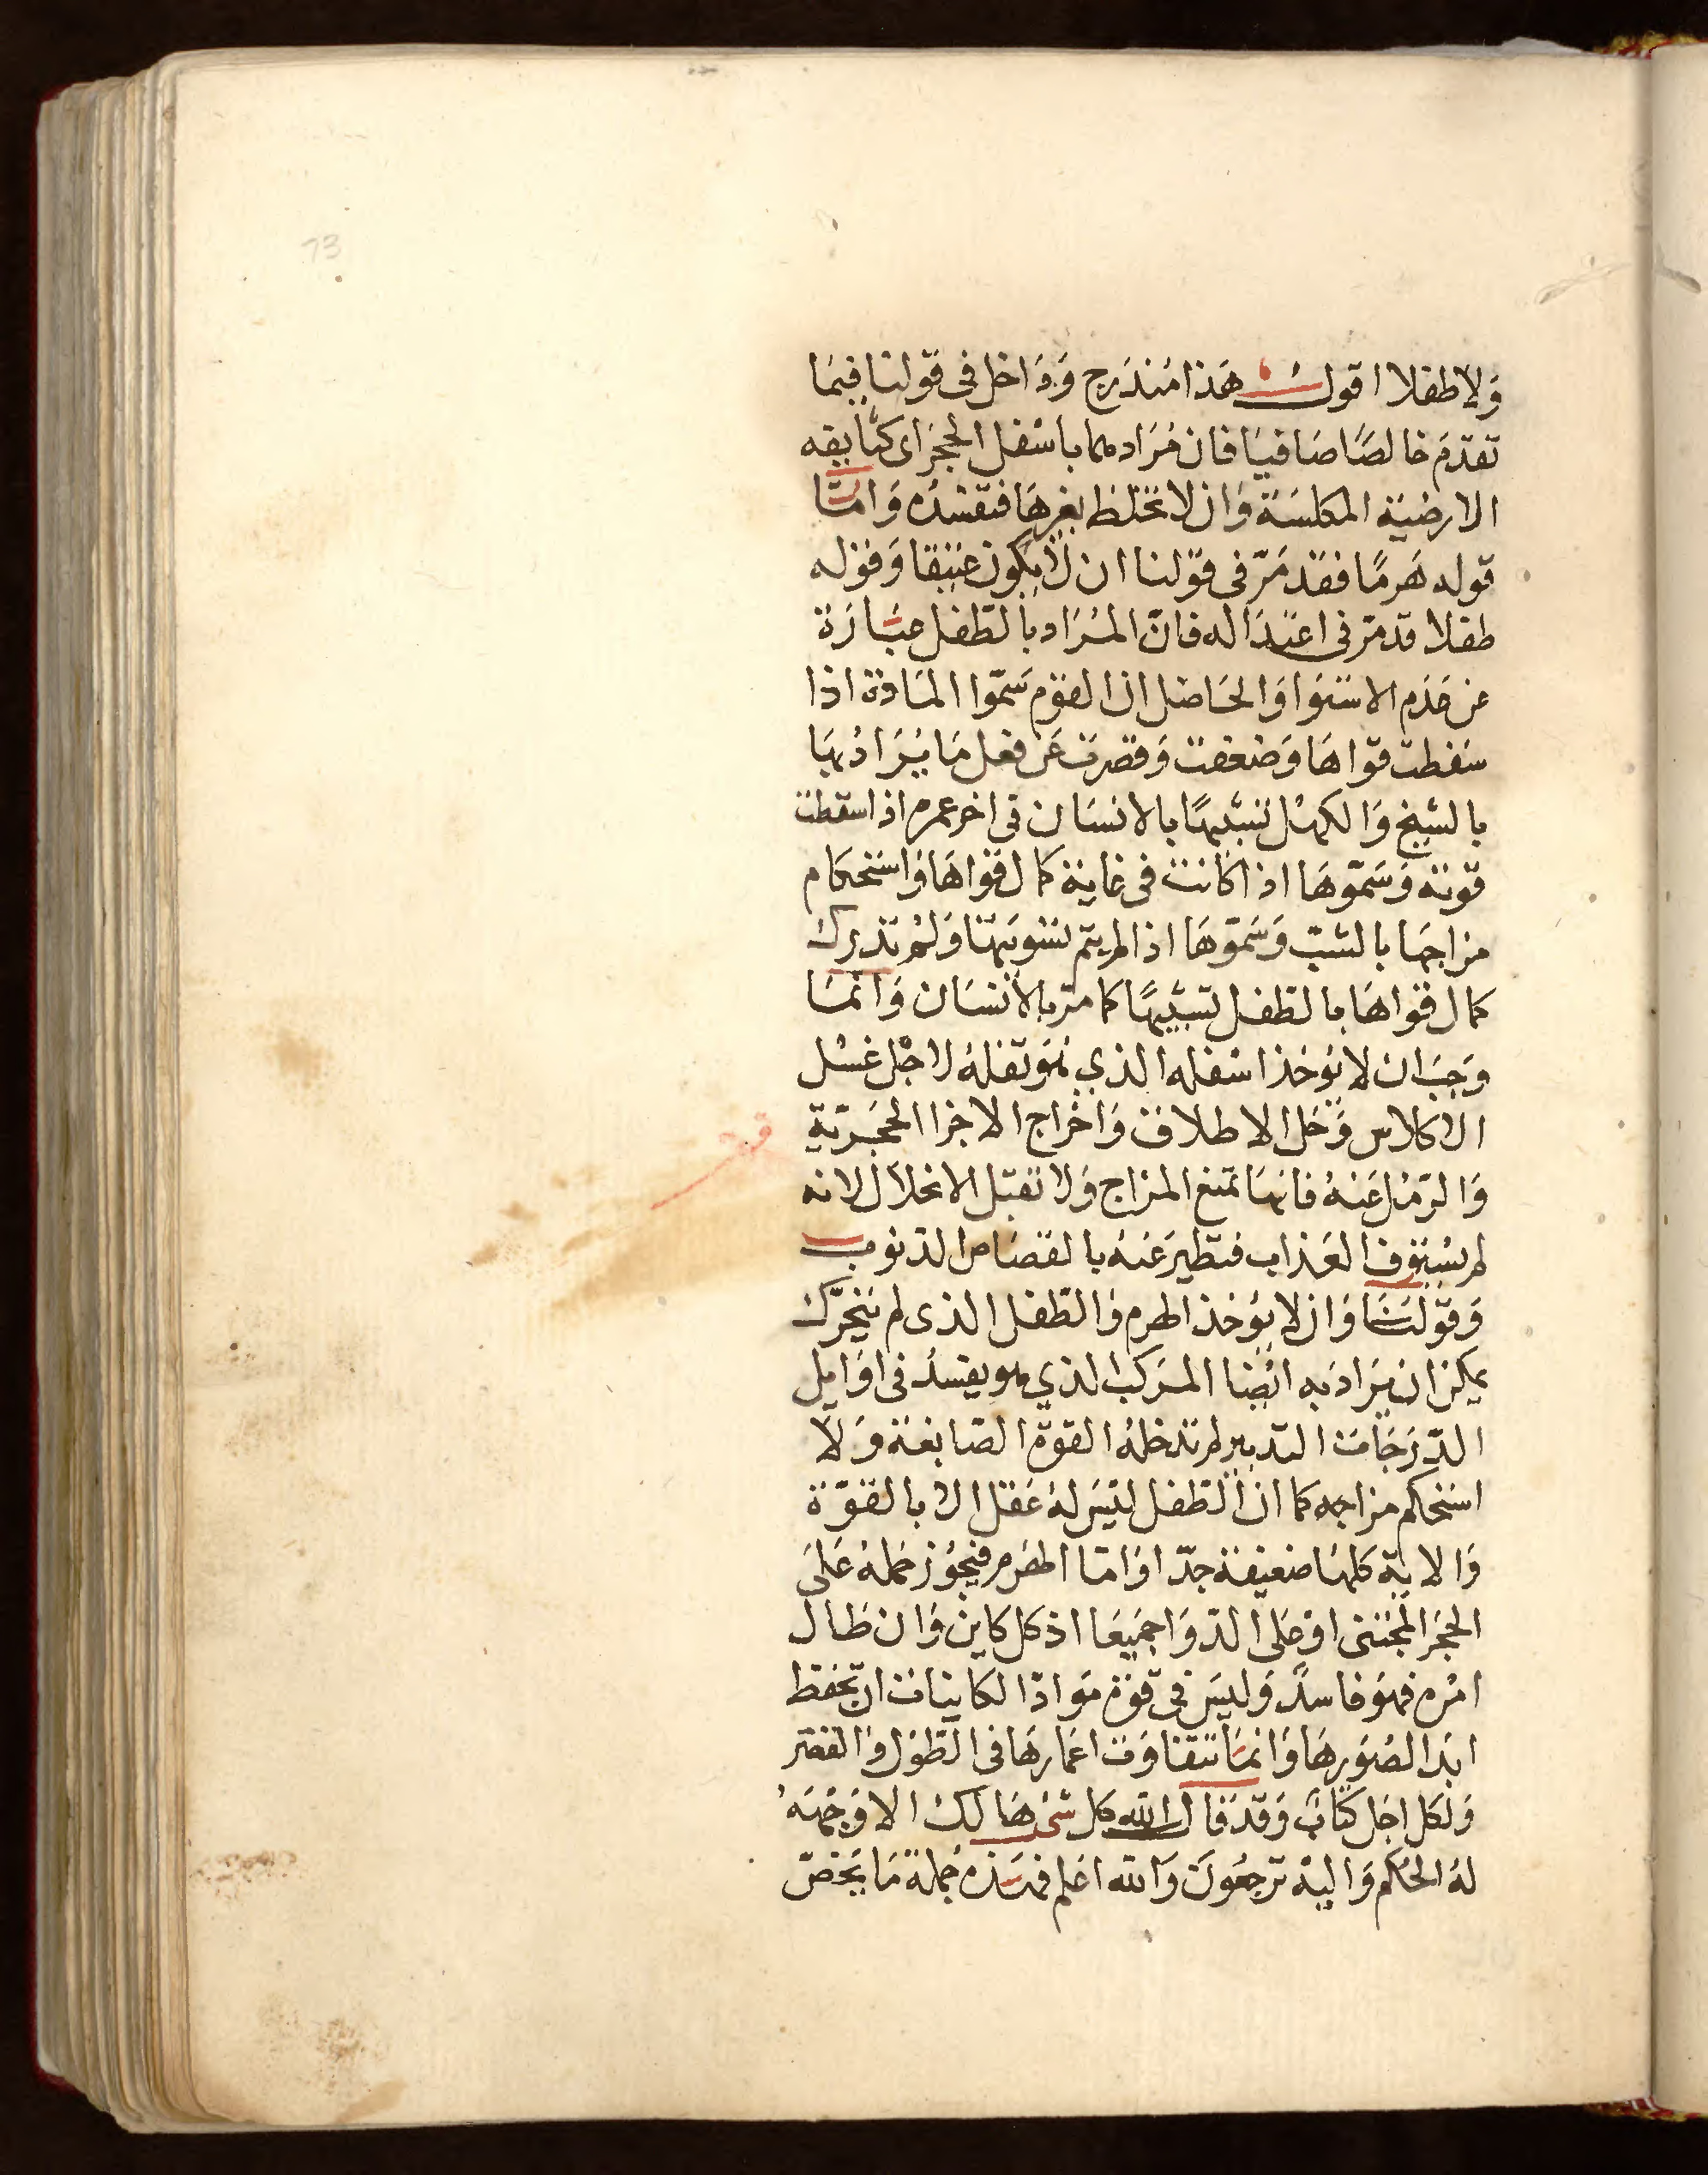 73
وَلا طفلا اقول هَذا مُندَرج وَدَاخل فى قولنا فيمَا
تقدّمَ خالصًا صَافيًا فان مُرَاده بما باسفل الحجَر اى كتابقه
الارضيّة المكلسَة وَان لا تختلط بغيرهَا فتفسدُه وَامّا
قوله هَرمًا فقد مَرّ فى قولنا ان لا يكون عتيقا وَقوله
طفلا قد مرّ فى اعتدَاله فانّ المُرَاد بالطّفل عبَارَة
عن عَدَم الاستوَا وَالحَاصل ان القوْم سَمّوا المَادة اذا
سَقطت قوّاهَا وَضعفت وَقصرت عَن فعل مَا يُرَادُ بهَا
بالشيخ وَالكهْل تشبيهًا بالانسَان فى اخر عمره اذا سقطت
قوته وَسَمّوهَا اذا كانت فى غاية كمال قوَاهَا وَاستحكام
مزاجهَا بالشبّ وَسَمّوهَا اذا لم يتم تسْويتهَا وَلم تدرك
كمال قوَاهَا بالطفل تشبيهًا كما مَرّ بالانسَان وَانّمَا
وَجبَ ان لا يُوخذ اسْفله الذي هُوَ ثفله لاجْل غسْل
الاكلاس وَحَل الاطلاق وَاخرَاج الاجزا الحجَريّة
وَالرّمْل عَنهُ فانهَا تمنع المزاج وَلا تقبَل الانحلال لانه
لم يسْتوف العَذاب فتطير عَنهُ بالقصَاص الذنوب
وَقولنَا وَان لا يُوخذ الهرم وَالطّفل الذى لم يتحرّك
يمكن ان يرَاد به ايْضا المركب الذي هو يفسدُ فى اوَايل
الدّرَجَات التدبير لم تدخلهُ القوّة الصّابغة وَلا
استحكم مزاجه كما ان الطفل ليْسَ لهُ عَقل الا بالقوّة
وَالالة كلهَا ضعيفة جدّا وَامّا الهرم فيجُوز حَملهُ عَلى
الحجَر المجْتنى اوْ عَلى الدّوَا جميعَا اذ كل كاين وَان طَال
امْره فهوَ فاسدٌ وَليسَ فى قوّة مَوادّ الكاينات ان تحفظ
ابَدا لصُوَرهَا وَانّمَا تتفاوَت اعمارهَا فى الطّوْل وَالقصَر
وَلكل اجَل كتابٌ وَقدْ قال الله كل شئ هَالك الا وَجْهَهُ
لهُ الحُكم وَاليْه ترجعُونَ وَالله اعلم فهَذه جُملة مَا يَخصّ